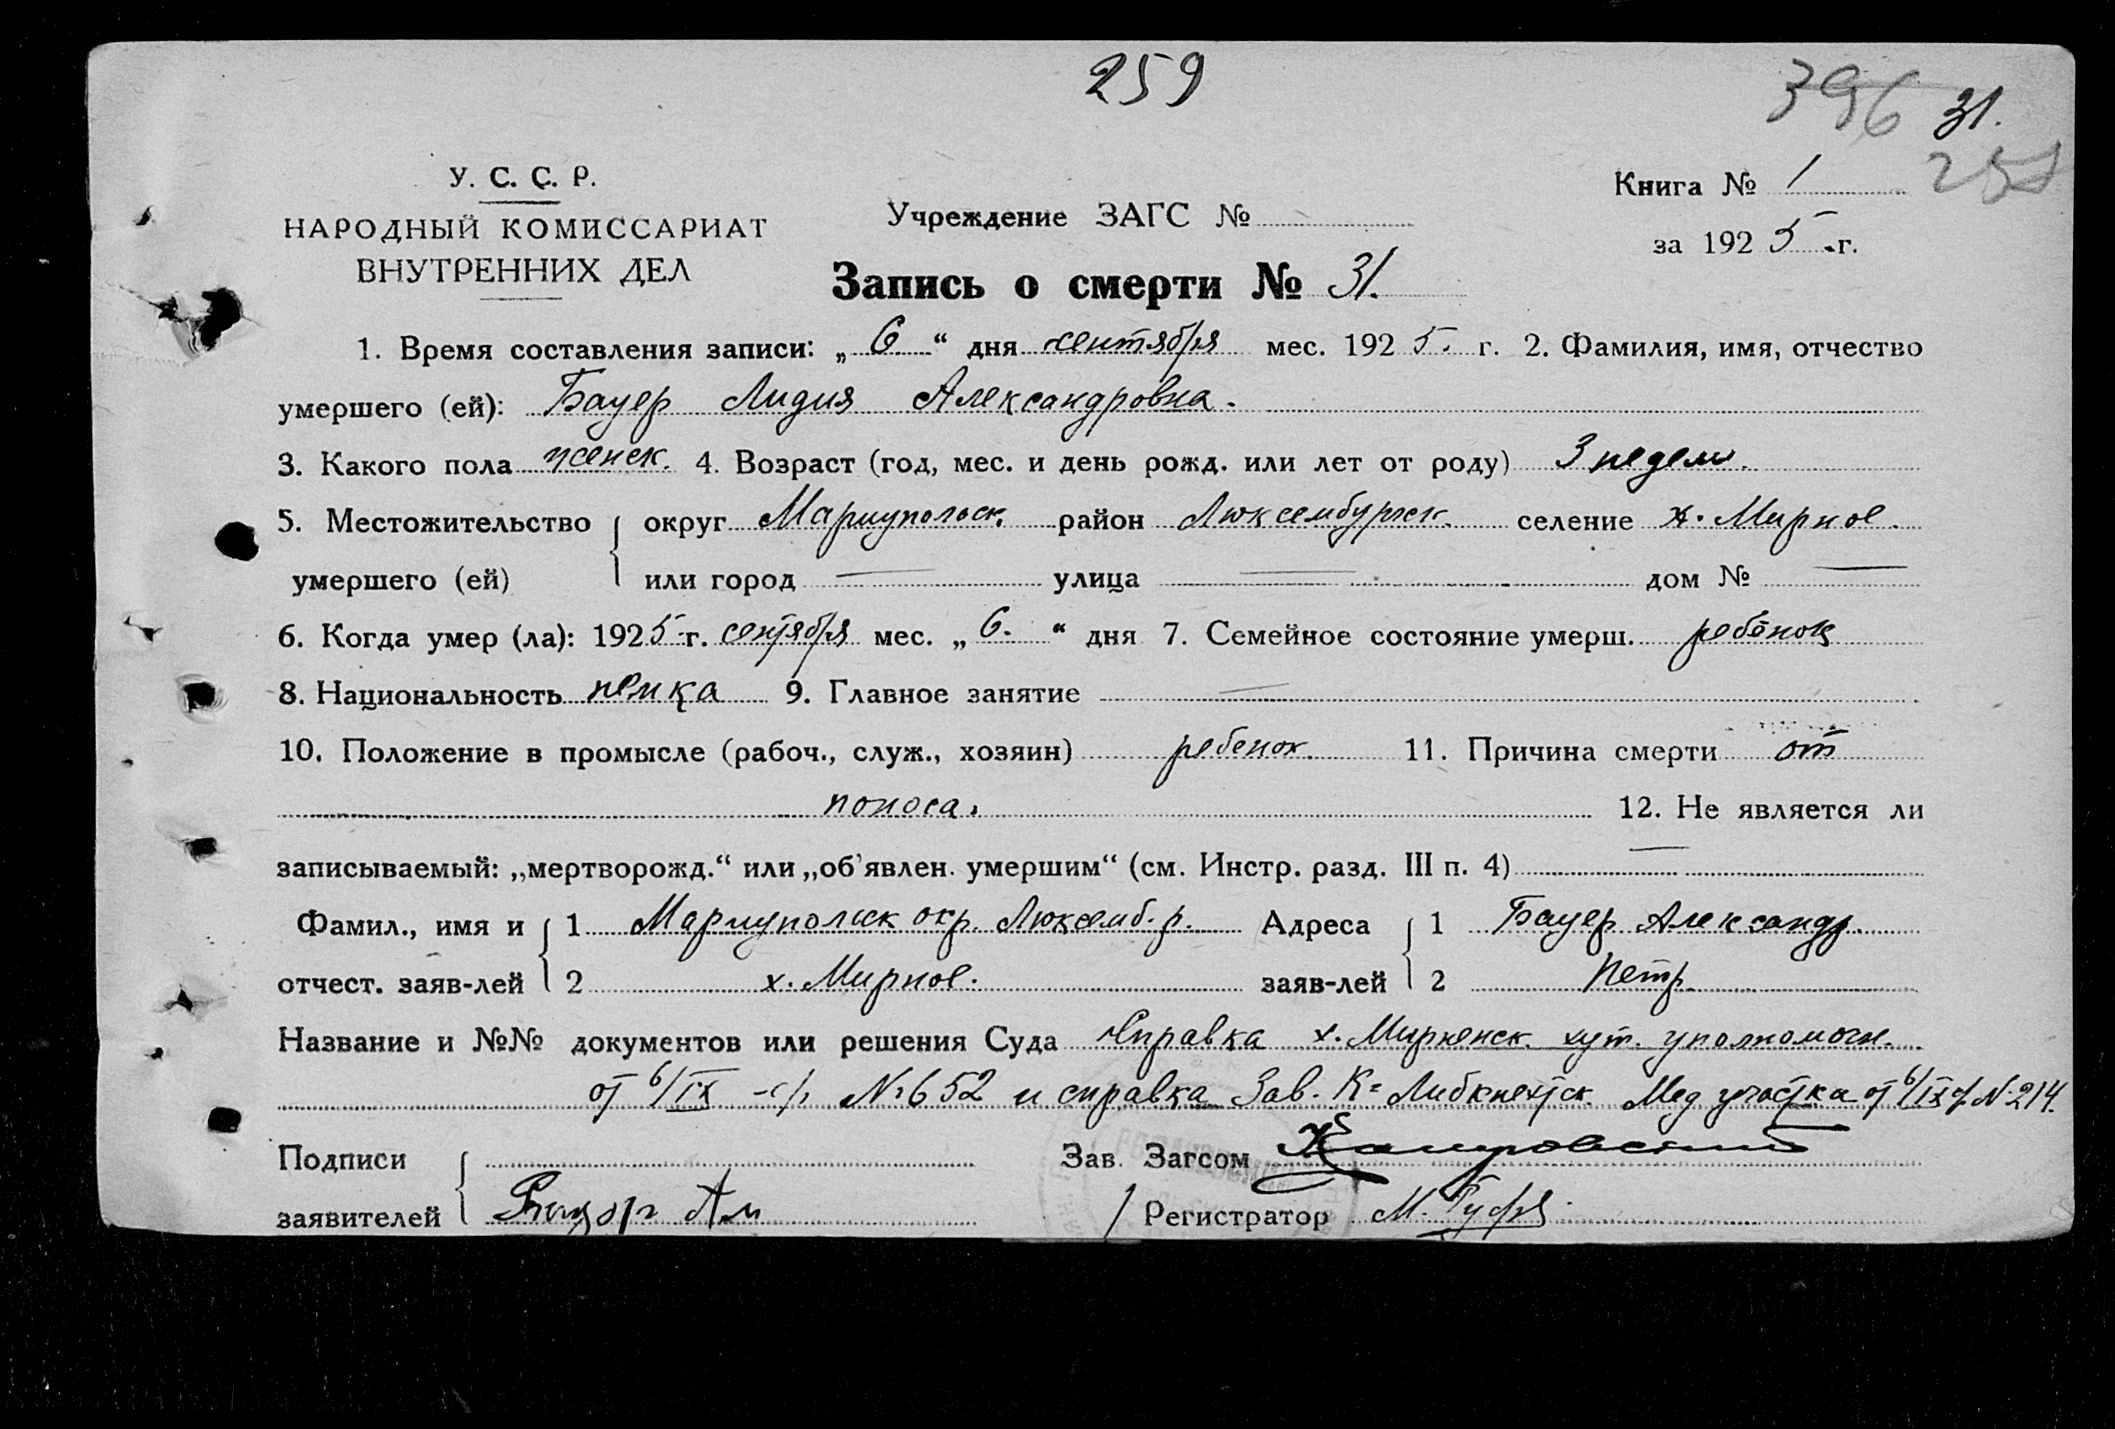 259
396 31.
У. С. С. Р.
НАРОДНЫЙ КОМИССАРИАТ
ВНУТРЕННИХ ДЕЛ
Учреждение ЗАГС №
Книга № 1
за 1925 г.
Запись о смерти № 31.
1. Время составления записи: „ 6 “ дня сентября мес. 1925. г. 2. Фамилия, имя, отчество
умершего (ей): Бауер Лидия Александровна.
3. Какого пола женск. 4. Возраст (год, мес. и день рожд. или лет от роду) 3 недели.
5. Местожительство округ Мариупольск. район Люксембургск. селение х. Мирное.
умершего (ей) или город — улица — дом № —
6. Когда умер (ла): 1925 г. сентября мес. „ 6. “ дня 7. Семейное состояние умерш. ребенок
8. Национальность немка 9. Главное занятие —
10. Положение в промысле (рабоч., служ., хозяин) ребенок. 11. Причина смерти от
поноса. 12. Не является ли
записываемый: „мертворожд.“ или „об'явлен. умершим“ (см. Инстр. разд. III п. 4) —
Фамил., имя и 1 Мариупольск окр. Люксемб. р. Адреса 1 Бауер Александр.
отчест. заяв-лей 2 х. Мирное. заяв-лей 2 Петр.
Название и №№ документов или решения Суда Справка х. Мирненск. хут. уполномоч.
от 6/IX с/г № 652 и справка Зав. К= Либкнехтск. Мед участка от 6/IX с/г № 214.
Подписи Зав. Загсом
заявителей Регистратор М.